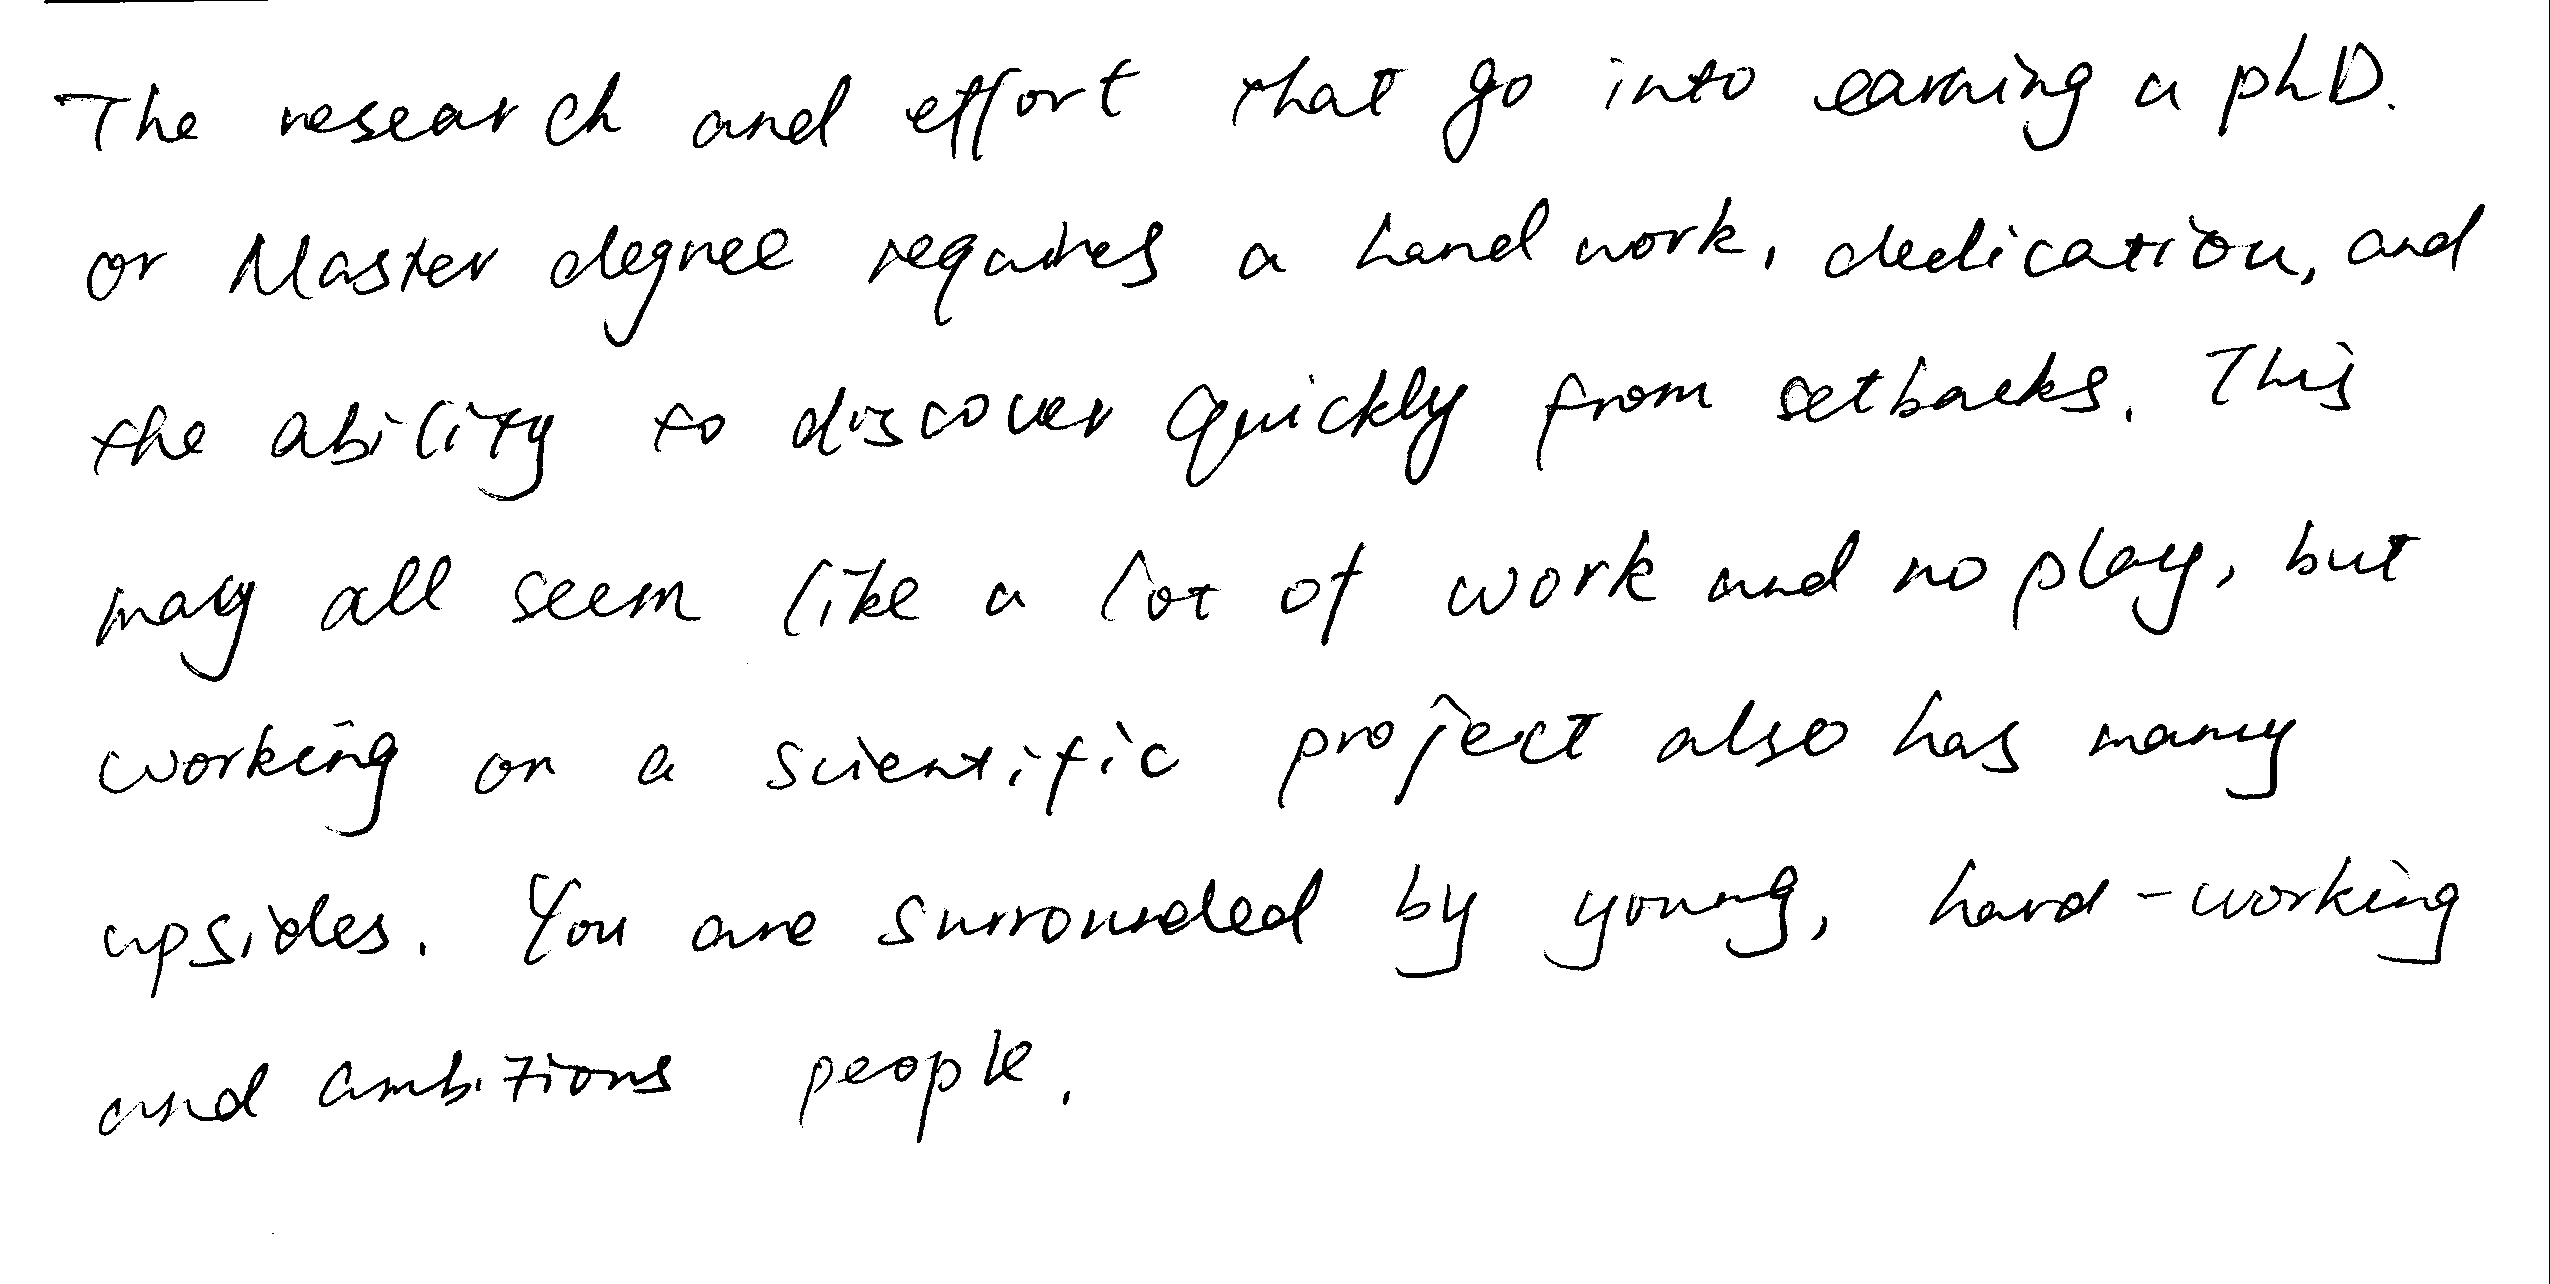 The research and effort that go into earning a phD.
or Master degree requires a hard work, dedication, and
the ability to discover quickly from setbacks. This
may all seem like a lot of work and no play, but
working on a scientific project also has many
upsides. You are surrounded by young, hard-working
and ambitions people.